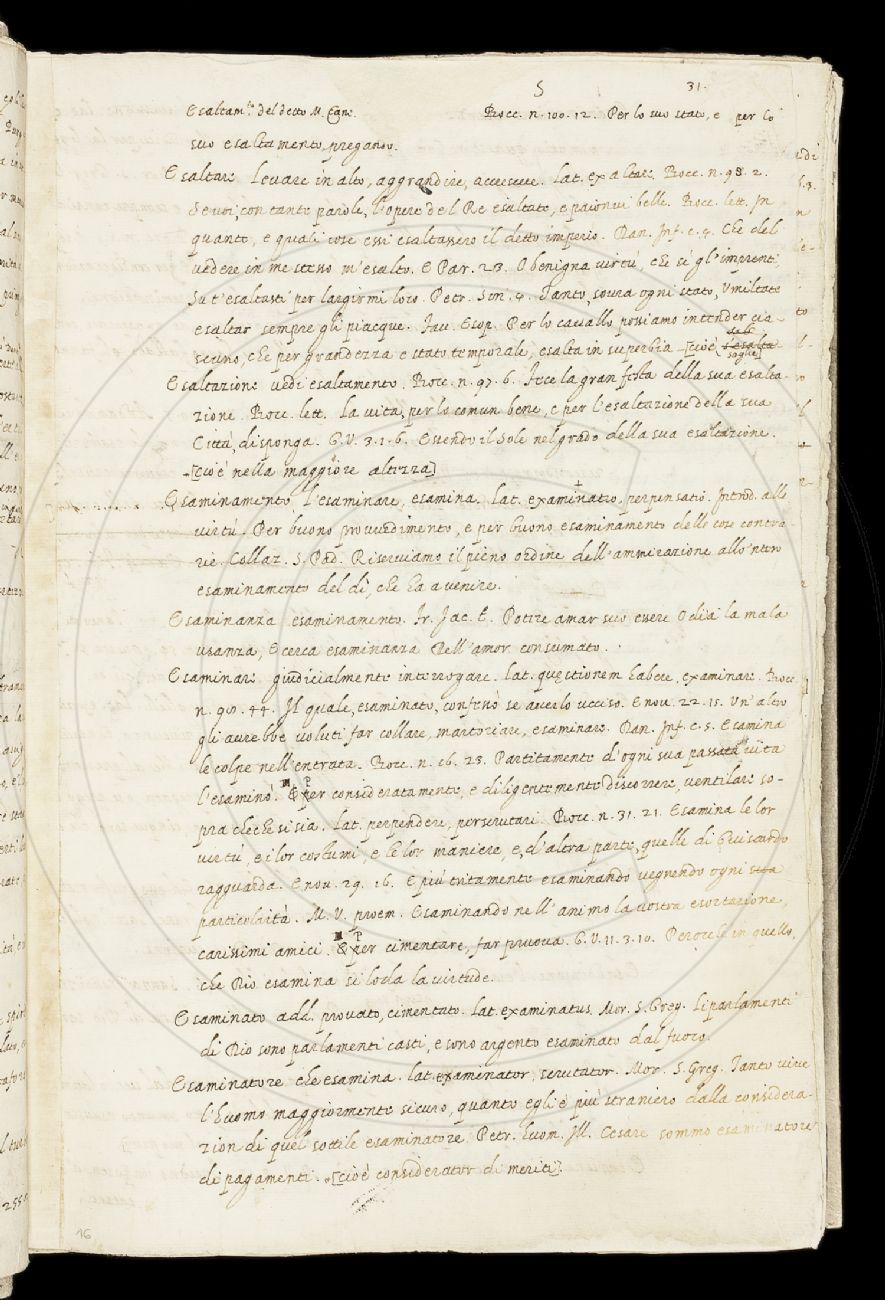 S 31.
Esaltam.to del detto M. Can. Bocc. n. 100. 12. Per lo suo stato, e per lo
suo esaltamento, pregano.
Esaltare Levare in alto, aggrandire, accrescere. Lat. exaltare. Bocc. n. 98. 2.
Se voi, con tante parole, l'opere del Re esaltate, e paionvi belle. Bocc. lett. In
quante, e quali cose essi esaltassero il detto imperio. Dan. Inf. c. 4. Che del
vedere in me stesso m'esalto. E Par. 23. O benigna virtù, che sì gl'imprenti,
Su t'esaltasti per largirmi loco. Petr. Son. 4. Tanto, sovra ogni stato, Umiltate
esaltar sempre gli piacque. Fav. Esop. Per lo cavallo possiamo intender cia-
scuno, che per grandezza e stato temporale, esalta in superbia [cioè s'esalta
saglie]
Esaltazione vedi esaltamento. Bocc. n. 97. 6. Fece la gran festa della sua esalta-
zione. Bocc. lett. La vita, per lo comun bene, e per l'esaltazione della sua
Città, disponga. G. V. 3. 1. 6. Essendo il Sole nel grado della sua esaltazione.
[cioè nella maggiore altezza]
Esaminamento, l'esaminare, esamina. Lat. examinatio, perpensatio. Introd. alle
virtù. Per buono provvedimento, e per buono esaminamento delle cose contra-
rie. Collaz. S. Pad. Riserviamo il pieno ordine dell'ammirazione allo 'ntero
esaminamento del dì, che ha a venire.
Esaminanza esaminamento. Fr. Jac. T. Potere amar suo essere Odia la mala
usanza, E cerca esaminanza Dell'amor consumato.
Esaminare giudicialmente interrogare. Lat. quęstionem habere, examinare. Bocc.
n. 44. Il quale, esaminato, confessò se averlo ucciso. E nov. 22. 15. Un'altro
gli avrebbe voluti far collare, martoriare, esaminare. Dan. Inf. c. 5. Esamina
le colpe nell'entrata. Bocc. n. 16. 23. Partitamente d'ogni sua passata vita
l'esaminò. Per consideratamente, e diligentemente discorrere, ventilare so-
pra checchesisia. Lat. perpendere, perscrutari. Bocc. n. 31. 21. Esamina le lor
virtù, e i lor costumi, e le lor maniere, e, d'altra parte, quelle di Guiscardo
ragguarda. E nov. 29. 16. E più tritamente esaminando vegnendo ogni sua
particolarità. M. V. proem. Esaminando nell'animo la vostra esortazione,
carissimi amici. Per cimentare, far pruova. G. V. 11. 3. 10. Perocchè in quello,
che Dio esamina si loda la virtude.
Esaminato add. provato, cimentato. Lat. examinatus. Mor. S. Greg. Li parlamenti
di Dio sono parlamenti casti, e sono argento esaminato dal fuoco.
Esaminatore che esamina. Lat. examinator, scrutator. Mor. S. Greg. Tanto vive
l'huomo maggiormente sicuro, quanto egli è più straniero dalla considera-
zion di quel sottile esaminatore. Petr. huom. Ill. Cesare sommo esaminatore
di pagamenti. [cioè considerator di meriti].
16